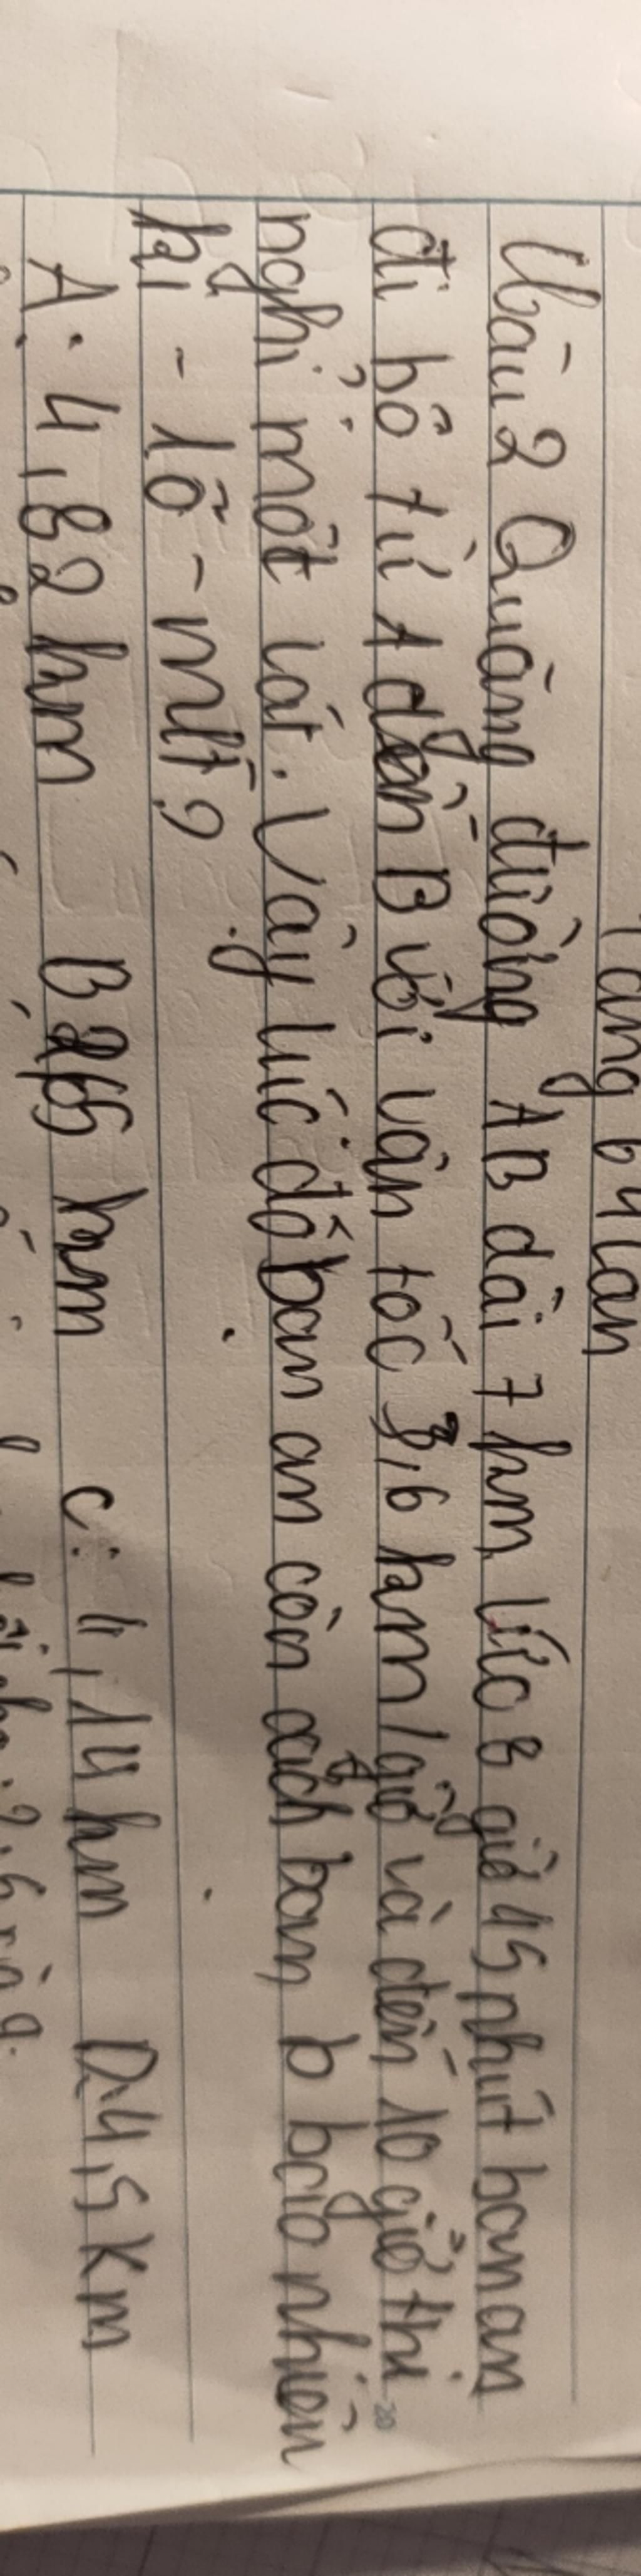 tăng 64 lần
Câu 2 Quãng đường AB dài 7 km lúc 8 giờ 45 phút bạn an
đi bộ từ A đến B với vận tốc 3,6 km/giờ và đến 10 giờ thì
nghỉ một lát. Vậy lúc đó bạn an còn cách bạn b bao nhiêu
ki - lô - mét?
A. 4,82 km B 2,5 km c: 4,14 km D.4,5 km